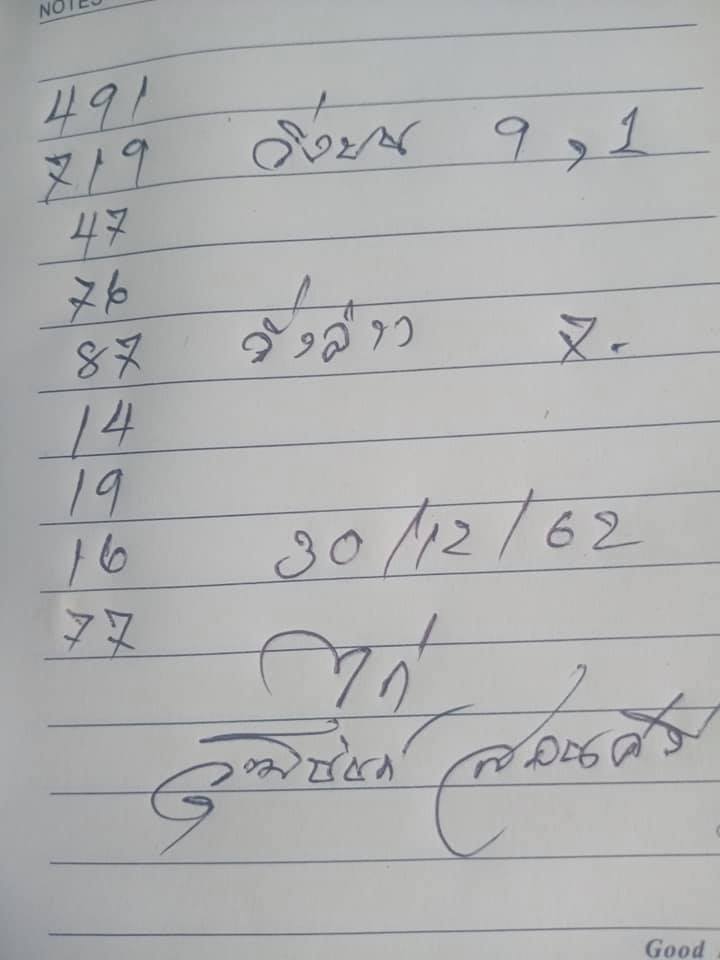 NOTES
491
719 วิ่งบน 9, 1
47
76
87 วิ่งล่าง 7.
14
19
16 30/12/62
77
ไก่
Good